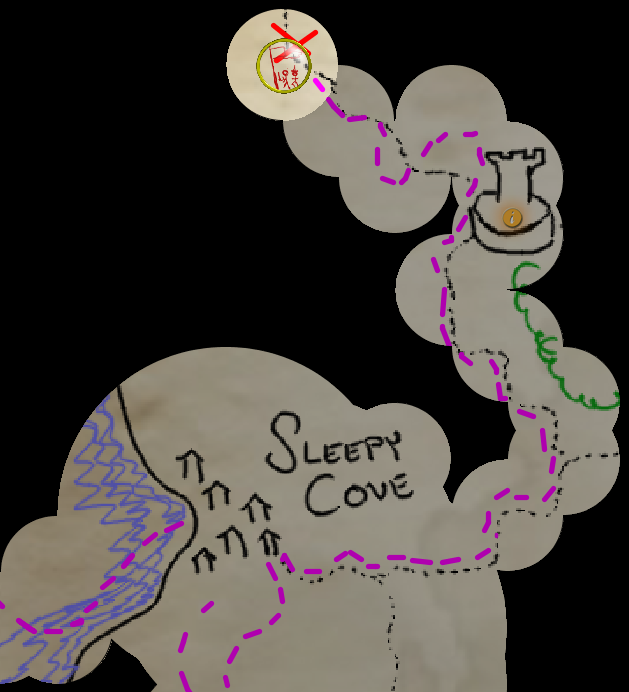 SLEEPY
COVE